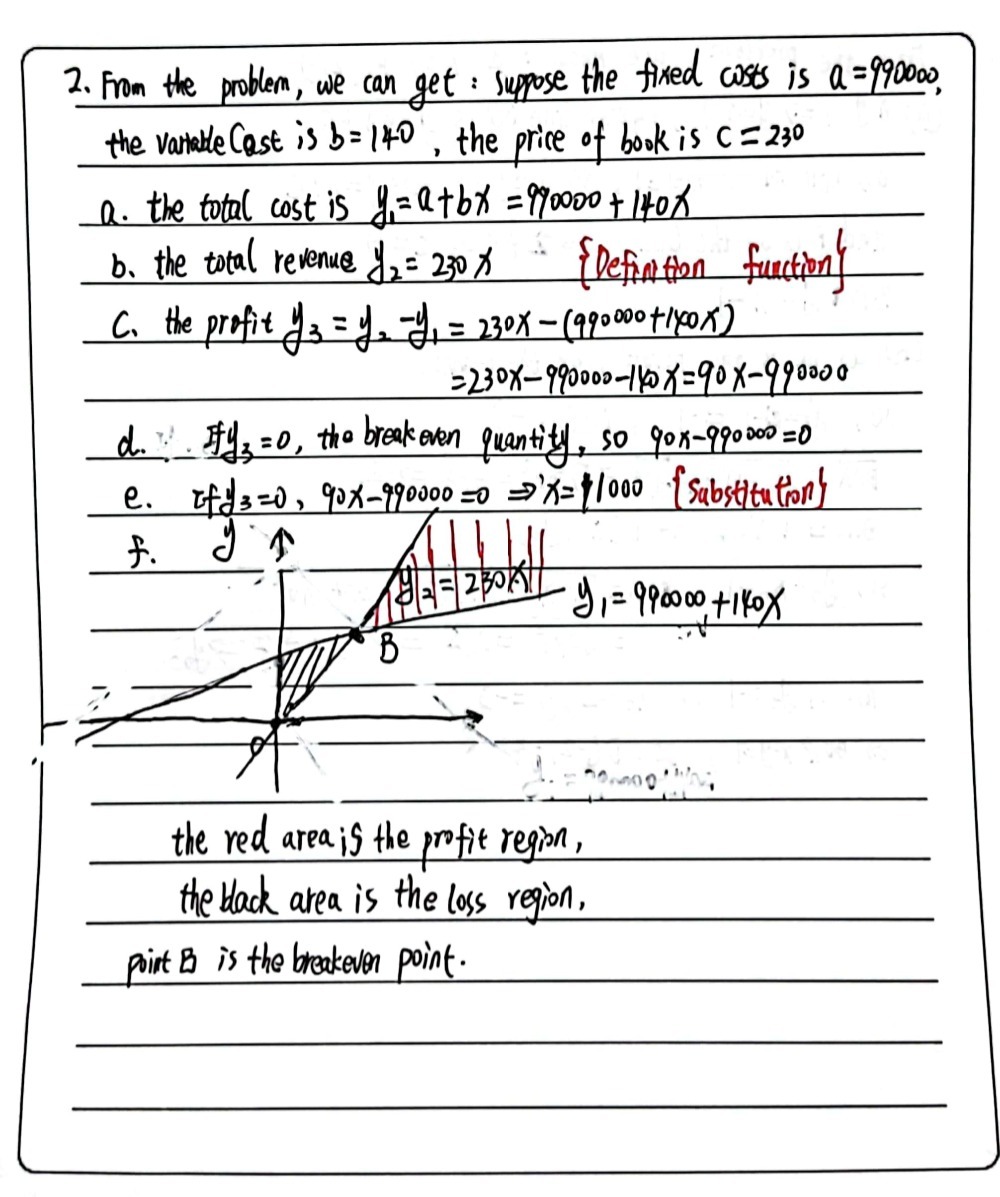 2. From the problem, we can get : suppose the fixed costs is a=990000,
the variable Cost is b=140 , the price of book is c=230
a. the total cost is y₁=a+bx =990000+140x
b. the total revenue y₂= 230x {Definition function}
C. the profit y₃ = y₂ -y₁ = 230x-(990000+140x)
=230x-990000-140x=90x-990000
d. If y₃=0, the breakeven quantity, so 90x-990000=0
e. If y₃=0, 90x-990000=0 ⇒ x=11000 {Substitution}
f. y
y₂=230x
y₁=990000+140x
B
the red area is the profit region,
the black area is the loss region,
point B is the breakeven point.